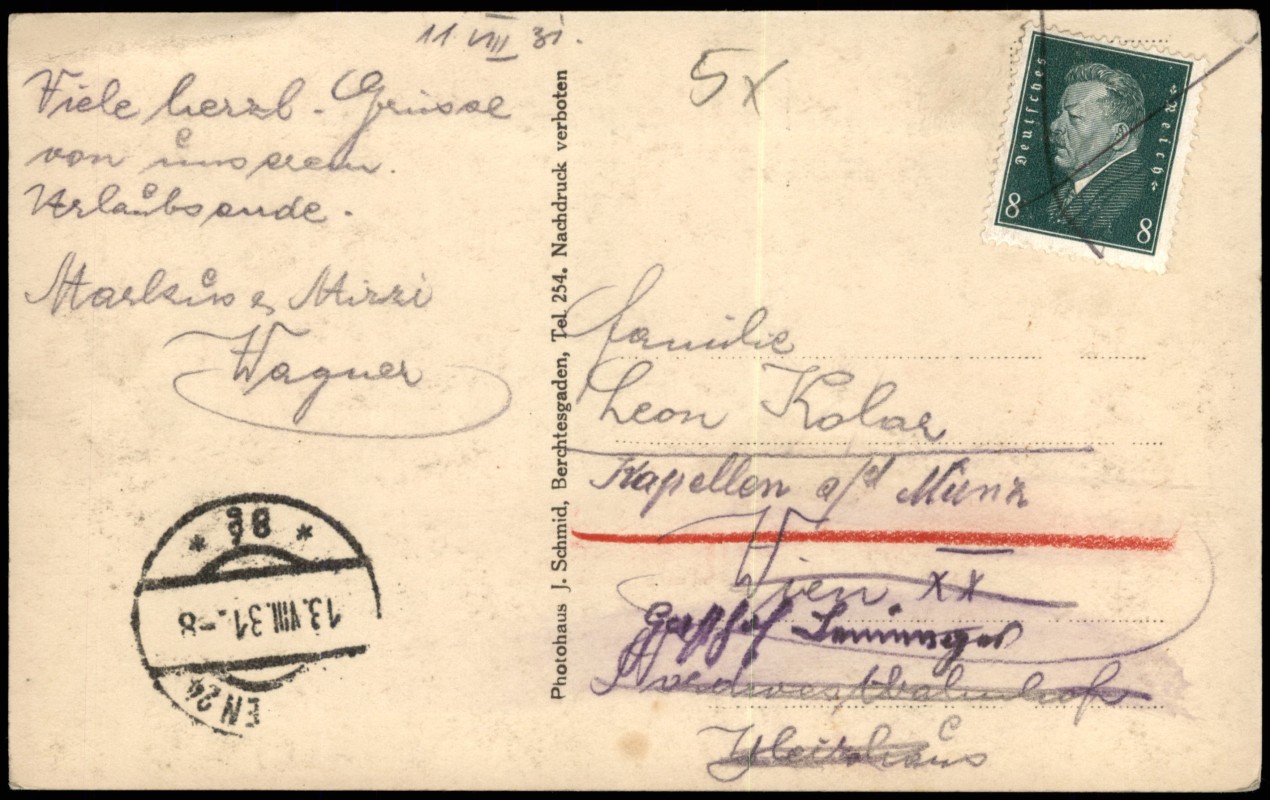 11 VIII 31.
Viele herzl. Grüsse
von unserem
Urlaubsende.
Markus & Mizzi
Wagner
38
13.VIII.31.-8
EN 24
Photohaus J. Schmid, Berchtesgaden, Tel. 254. Nachdruck verboten
5x
Deutsches Reich
8 8
Familie
Leon Kolar
Kapellen a/d Mürz
Wien XX
Gasthof
Nordwestbahnhof